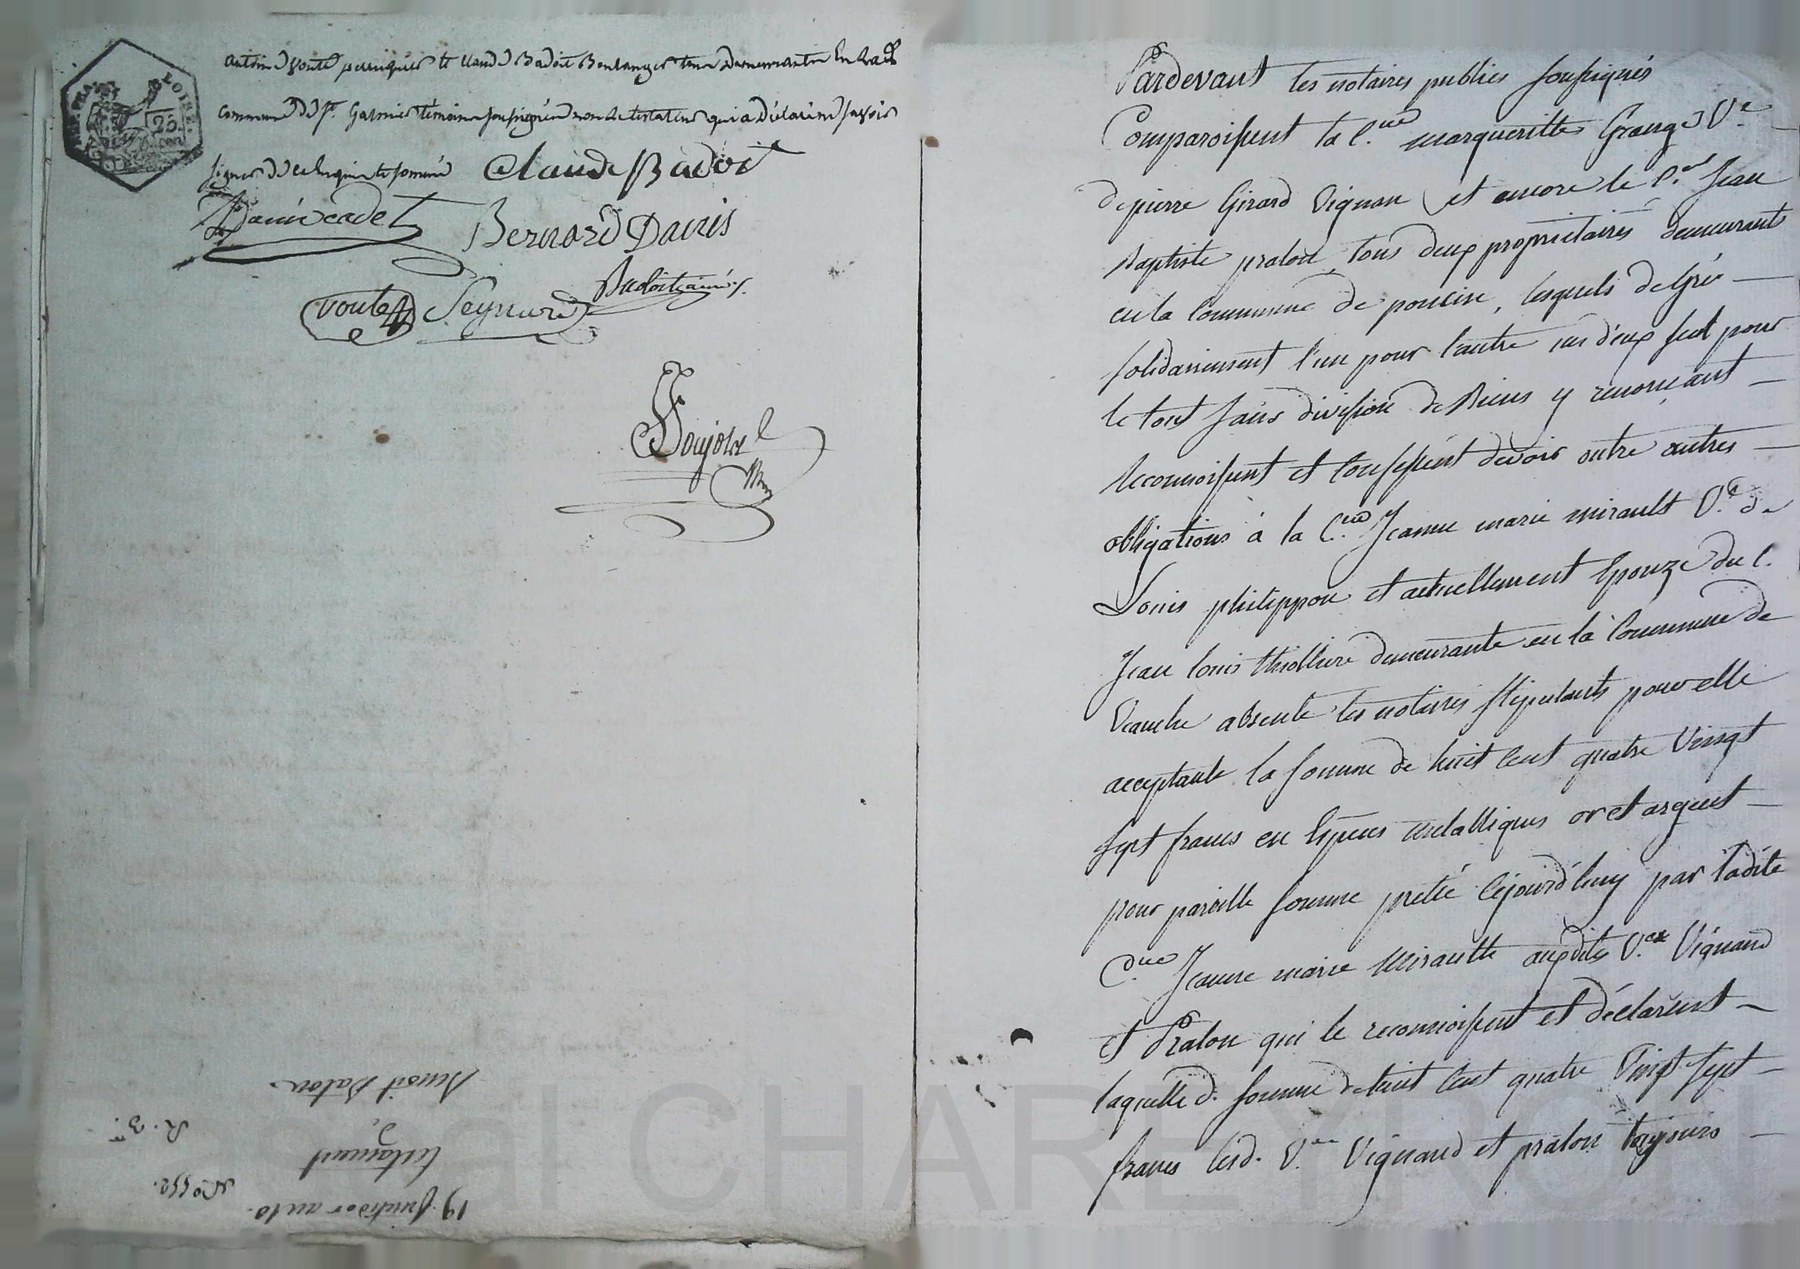 antoine voute perruquier et claude Badoit Boulanger tous demeurants en lad.
commune de St. Galmier témoins soussignés non le testateur qui a déclaré ne savoir
signer de ce enquis et sommé Claude Badoit
Davis cadet Bernard Davis
Badoit ainé
voute Peynard
Poujol
Nre
Pardevant les notaires publics soussignés
Comparoissent la C.ne margueritte Grange V.e
de pierre Girard Vignan et encore le C.en Jean
Baptiste pralon tous deux propriétaires demeurants
en la Commune de poncin, lesquels de Gré
solidairement l'un pour l'autre un d'eux seul pour
le tout sans division de Biens y renonçant
Reconnoissent et Confessent devoir outre autres
obligations à la C.ne Jeanne marie mirault V.e de
Louis philippon et actuellement Epouze du C.
Jean louis thiolliere demeurante en la Commune de
Veauche absente les notaires stipulants pour elle
acceptante la somme de huit Cent quatre Vingt
sept francs en Espèces metalliques or et argent
pour pareille somme pretée Cejourd'huy par ladite
C.ne Jeanne marie Mirault auxdits V.ve Vignand
et Pralon qui le reconnoissent et déclarent
laquelle d. somme de huit Cent quatre Vingt Sept
francs lesd. V.ve Vignand et pralon toujours
19 fructidor an 10
N° 552.
testament
Benoit Dalon
R. 3
REP. FRA
LOIRE
25
CHAREYRON